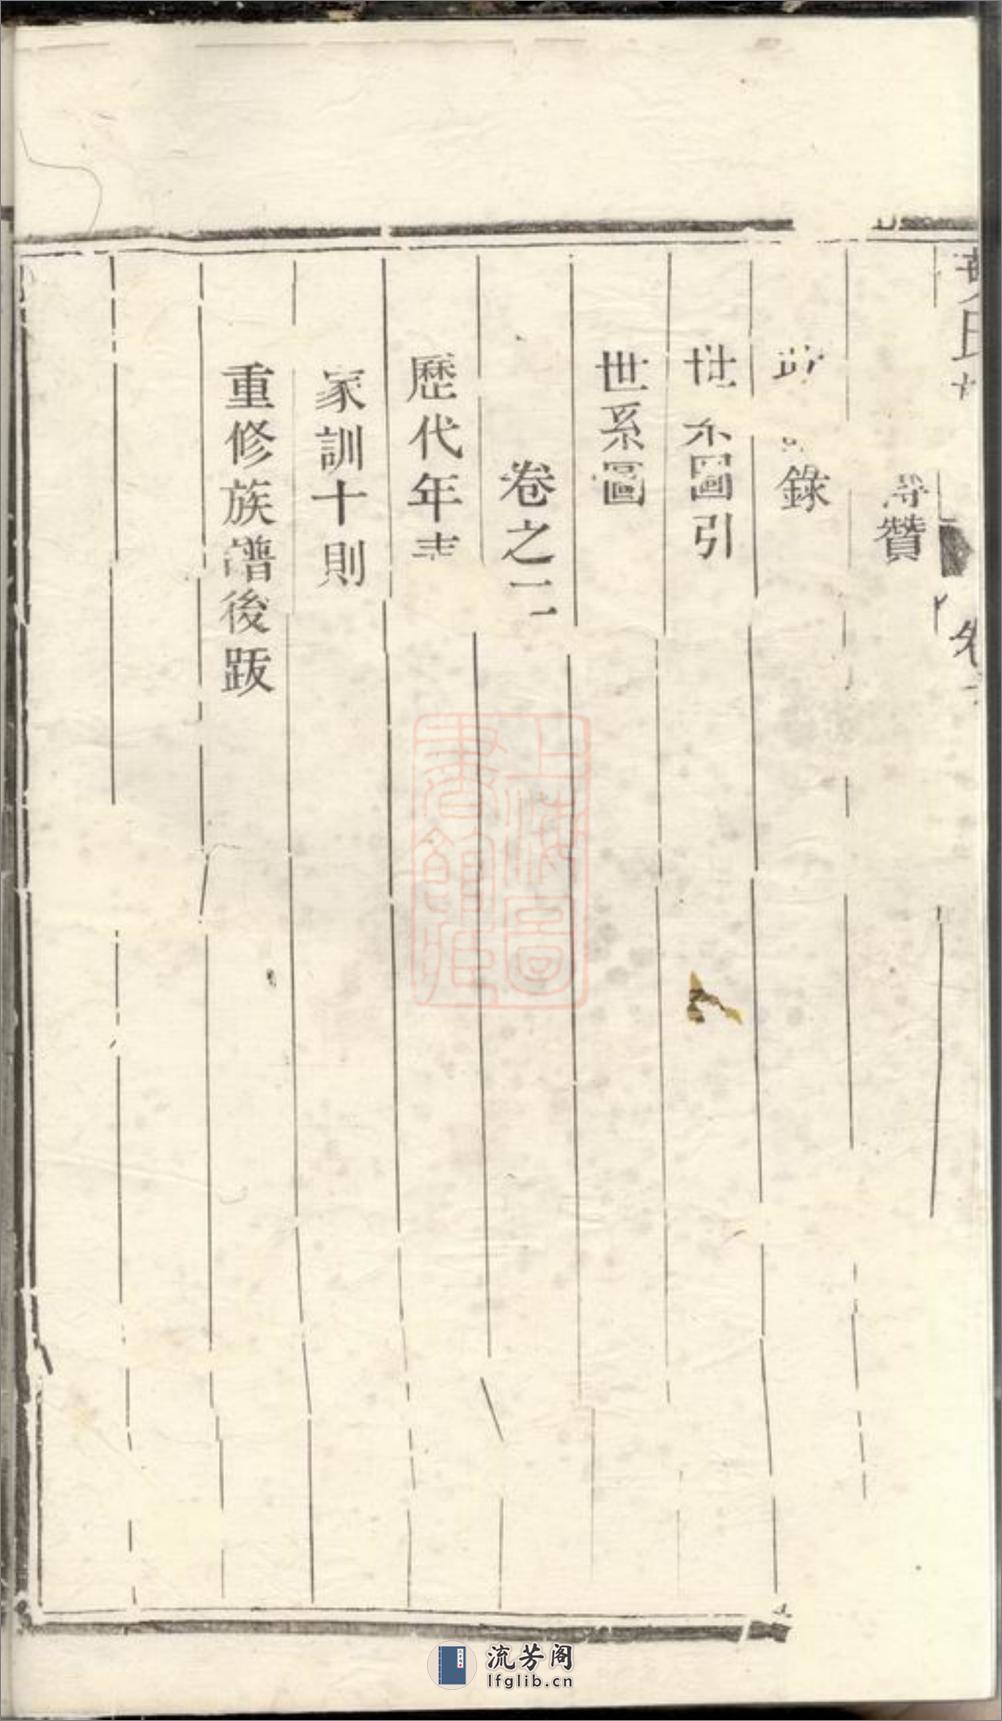 氏
卷
贊
錄
世系圖引
世系圖
卷之二
歷代年表
家訓十則
重修族譜後跋
上海圖書館藏
流芳阁
lfglib.cn